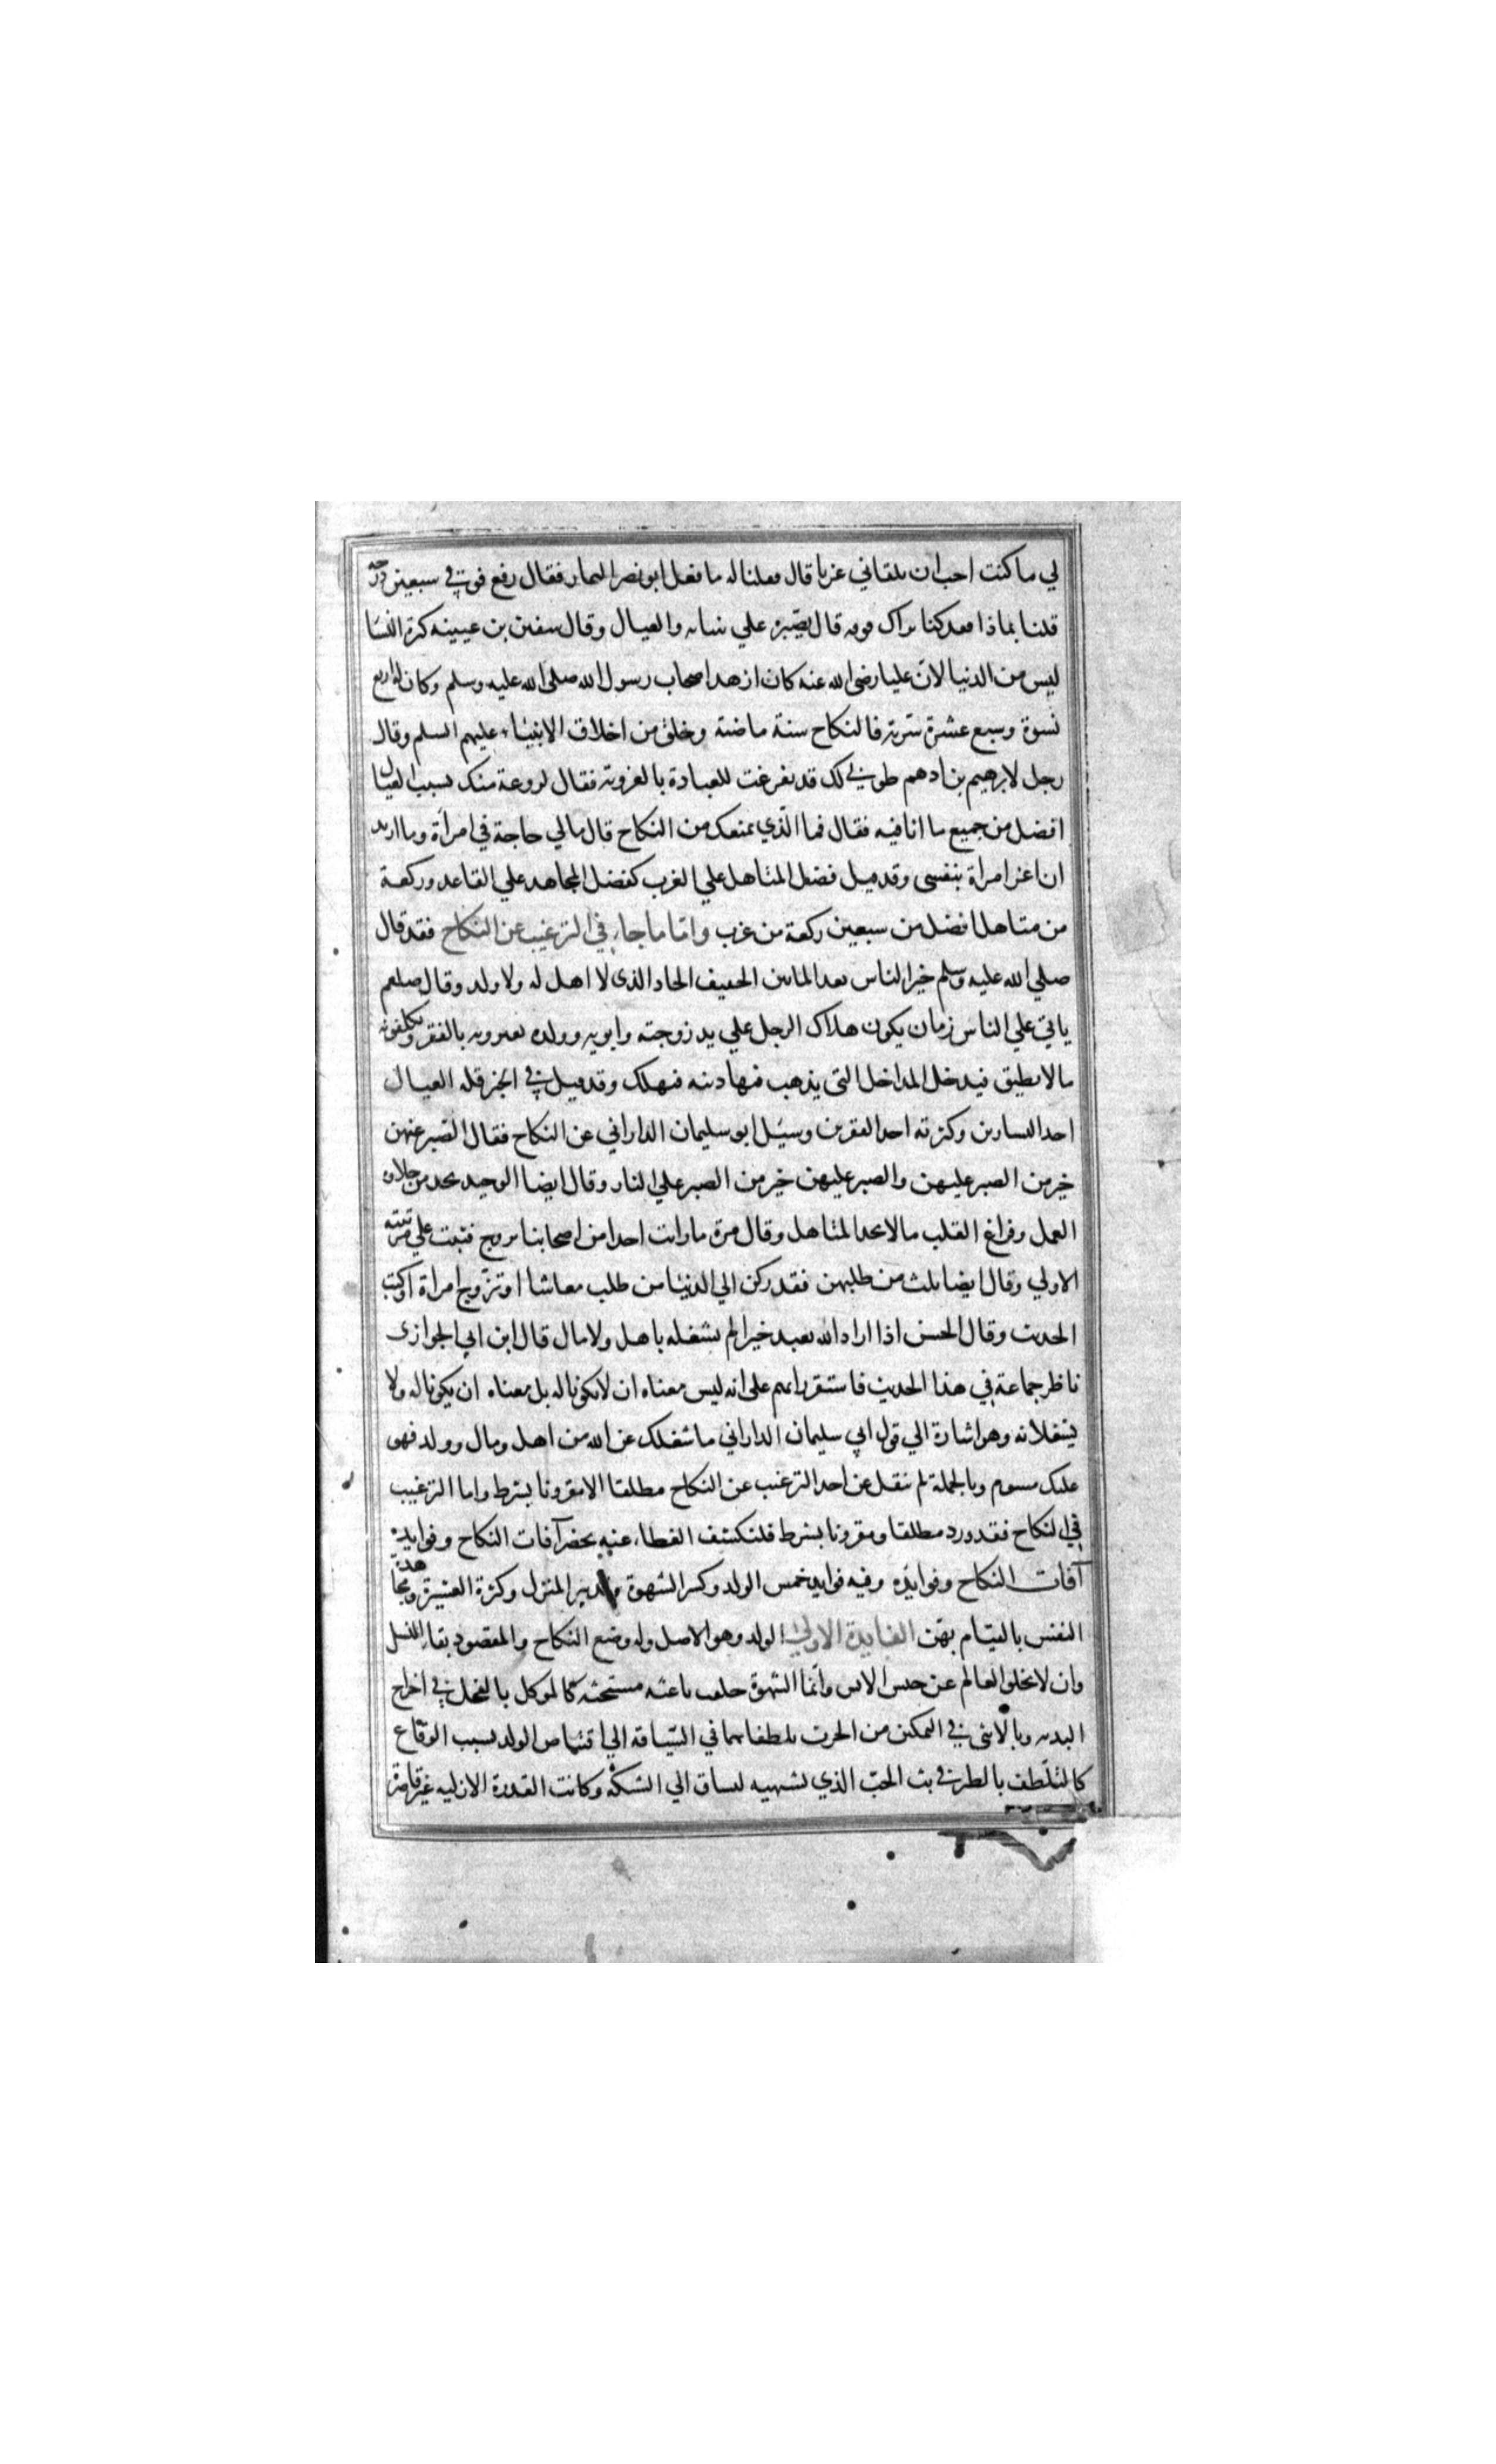 لي ما كنت احب ان تلقاني عزبا قال فقلنا له ما فعل ابو نصر التمار فقال رفع فوقي في سبعين درجة
قلنا بماذا فقد كنا نراك فوقه قال بصبره علي بنياته والعيال وقال سفين بن عيينه كثرة النسا
ليس من الدنيا لان عليا رضي الله عنه كان ازهد اصحاب رسول الله صلي الله عليه وسلم وكان له اربع
نسوة وسبع عشرة سرية فالنكاح سنة ماضية وخلق من اخلاق الانبياء عليهم السلم وقال
رجل لابرهيم بن ادهم طوبي لك قد تفرغت للعبادة بالعزوبة فقال لروعة منك بسبب العيال
افضل من جميع ما انا فيه فقال فما الذي يمنعك من النكاح قال مالي حاجة في امرأة وما اريد
ان اغر امراة بنفسي وقد قيل فضل المتاهل علي العزب كفضل المجاهد علي القاعد وركعة
من متاهل افضل من سبعين ركعة من عزب واما ما جاء في الترغيب عن النكاح فقد قال
صلي الله عليه وسلم خير الناس بعد الماتين الخفيف الحاد الذي لا اهل له ولا ولد وقال صلعم
ياتي علي الناس زمان يكون هلاك الرجل علي يد زوجته وابويه وولده يعيرونه بالفقر ويكلفونه
مالا يطيق فيدخل المداخل التي يذهب فيها دينه فيهلك وقد قيل في الخبر قلة العيال
احد اليسارين وكثرته احد الفقرين وسئل ابو سليمان الداراني عن النكاح فقال الصبر عنهن
خير من الصبر عليهن والصبر عليهن خير من الصبر علي النار وقال ايضا الوحيد يجد من حلاوة
العمل وفراغ القلب مالا يجد المتاهل وقال مرة ما رايت احدا من اصحابنا تزوج فثبت علي مرتبته
الاولي وقال ايضا ثلث من طلبهن فقد ركن الي الدنيا من طلب معاشا او تزوج امراة او كتب
الحديث وقال الحسن اذا اراد الله بعبد خيرا لم يشغله باهل ولا مال قال ابن ابي الجوازي
ناظر جماعة في هذا الحديث فاستقر رايهم علي انه ليس معناه ان لا يكونا له بل معناه ان يكونا له ولا
يشغلانه وهو اشارة الي قول ابي سليمان الداراني ما شغلك عن الله من اهل ومال وولد فهو
عليك مسوم وبالجملة لم ينقل عن احد الترغيب عن النكاح مطلقا الا مقرونا بشرط واما الترغيب
في النكاح فقد ورد مطلقا ومقرونا بشرط فلنكشف الغطاء عنه بحصر آفات النكاح وفوايده
آفات النكاح وفوايده وفيه فوايد خمس الولد وكسر الشهوة وتدبير المنزل وكثرة العشيرة ومجاهدة
النفس بالقيام بهن الفايدة الاولي الولد وهو الاصل وله وضع النكاح والمقصود بقاء النسل
وان لا يخلو العالم عن جنس الانس وانما الشهوة خلقت باعثة مستحثة كالموكل بالفحل في اخراج
البذر وبالانثي في التمكين من الحرث تلطفا بهما في السياقة الي اقتناص الولد بسبب الوقاع
كالتلطف بالطير في بث الحب الذي يشتهيه ليساق الي الشبكة وكانت القدرة الازلية غير قاصرة